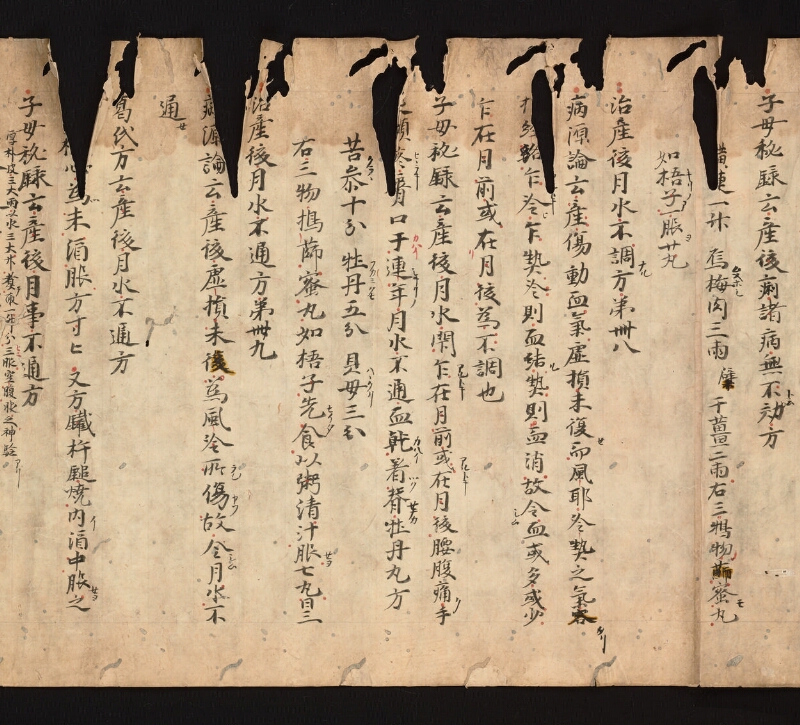 子母秘録云産後痢諸病無不効方
黄連一升 烏梅肉三両 干薑二両右三物篩蜜丸
如梧子一服廿丸
治産後月水不調方第卅八
病源論云産傷動血氣虚損未復而風耶冷熱之氣客
経絡乍冷乍熱冷則血結熱則血消故令血或多或少
乍在月前或在月後爲不調也
子母秘録云産後月水閇乍在月前或在月後腰腹痛手
煩唇口干連年月水不通血乾着脊牡丹丸方
苦参十分 牡丹五分 貝母三分
右三物搗篩蜜丸如梧子先食以粥清汁服七丸日三
治産後月水不通方第卅九
病源論云産後虚損未復爲風冷所傷故令月水不
通
葛氏方云産後月水不通方
心爲末酒服方寸匕 又方 杵鎚焼内酒中服之
子母秘録云産後月事不通方
厚朴皮三大両以水三大升煮取一升分三服空腹服之神驗